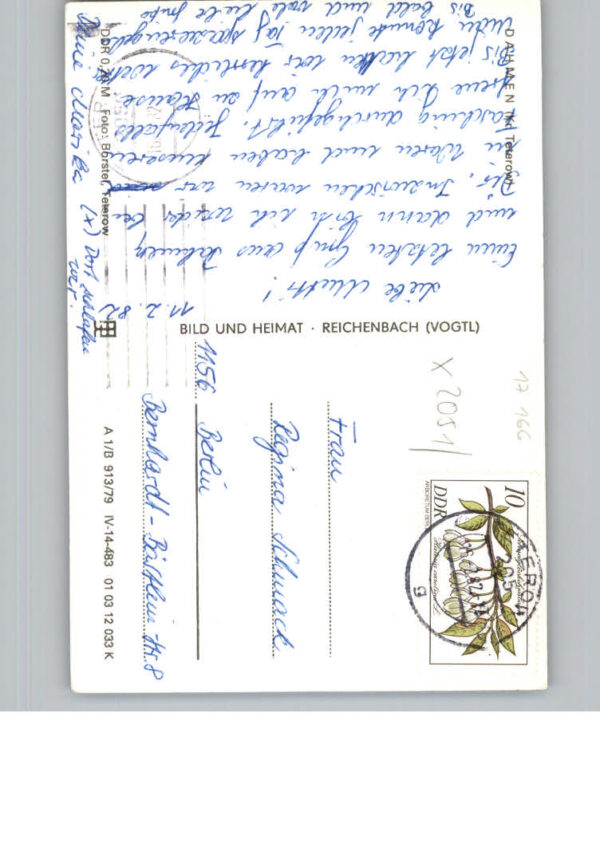 DAHMEN (Kr. Teterow)
11.2.82
Liebe Mutti!
Einen letzten Gruß aus Dahmen
und dann bin ich wieder bei
Dir. Inzwischen waren wir
in Waren und haben unseren
Fasching durchgeführt. Jedenfalls
freue ich mich auf zu Hause.
Bis jetzt hatten wir herrliches
Bis bald und viele liebe Grüße
Deine Marika
(x) Dort schlafen
wir.
DDR 0,20 M Foto: Börster, Teterow
BILD UND HEIMAT · REICHENBACH (VOGTL)
A 1/B 913/79 IV-14-483 01 03 12 033 K
X 2051/
17 166
10
DDR
Frau
Regina Schwack
1156 Berlin
Bernhardt-Bästlein-Str. 8